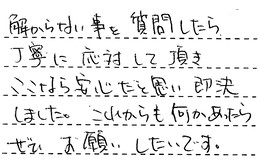 解からない事を質問したら
丁寧に応対して頂き
ここなら安心だと思い即決
しました。これからも何かあったら
ぜひお願いしたいです。